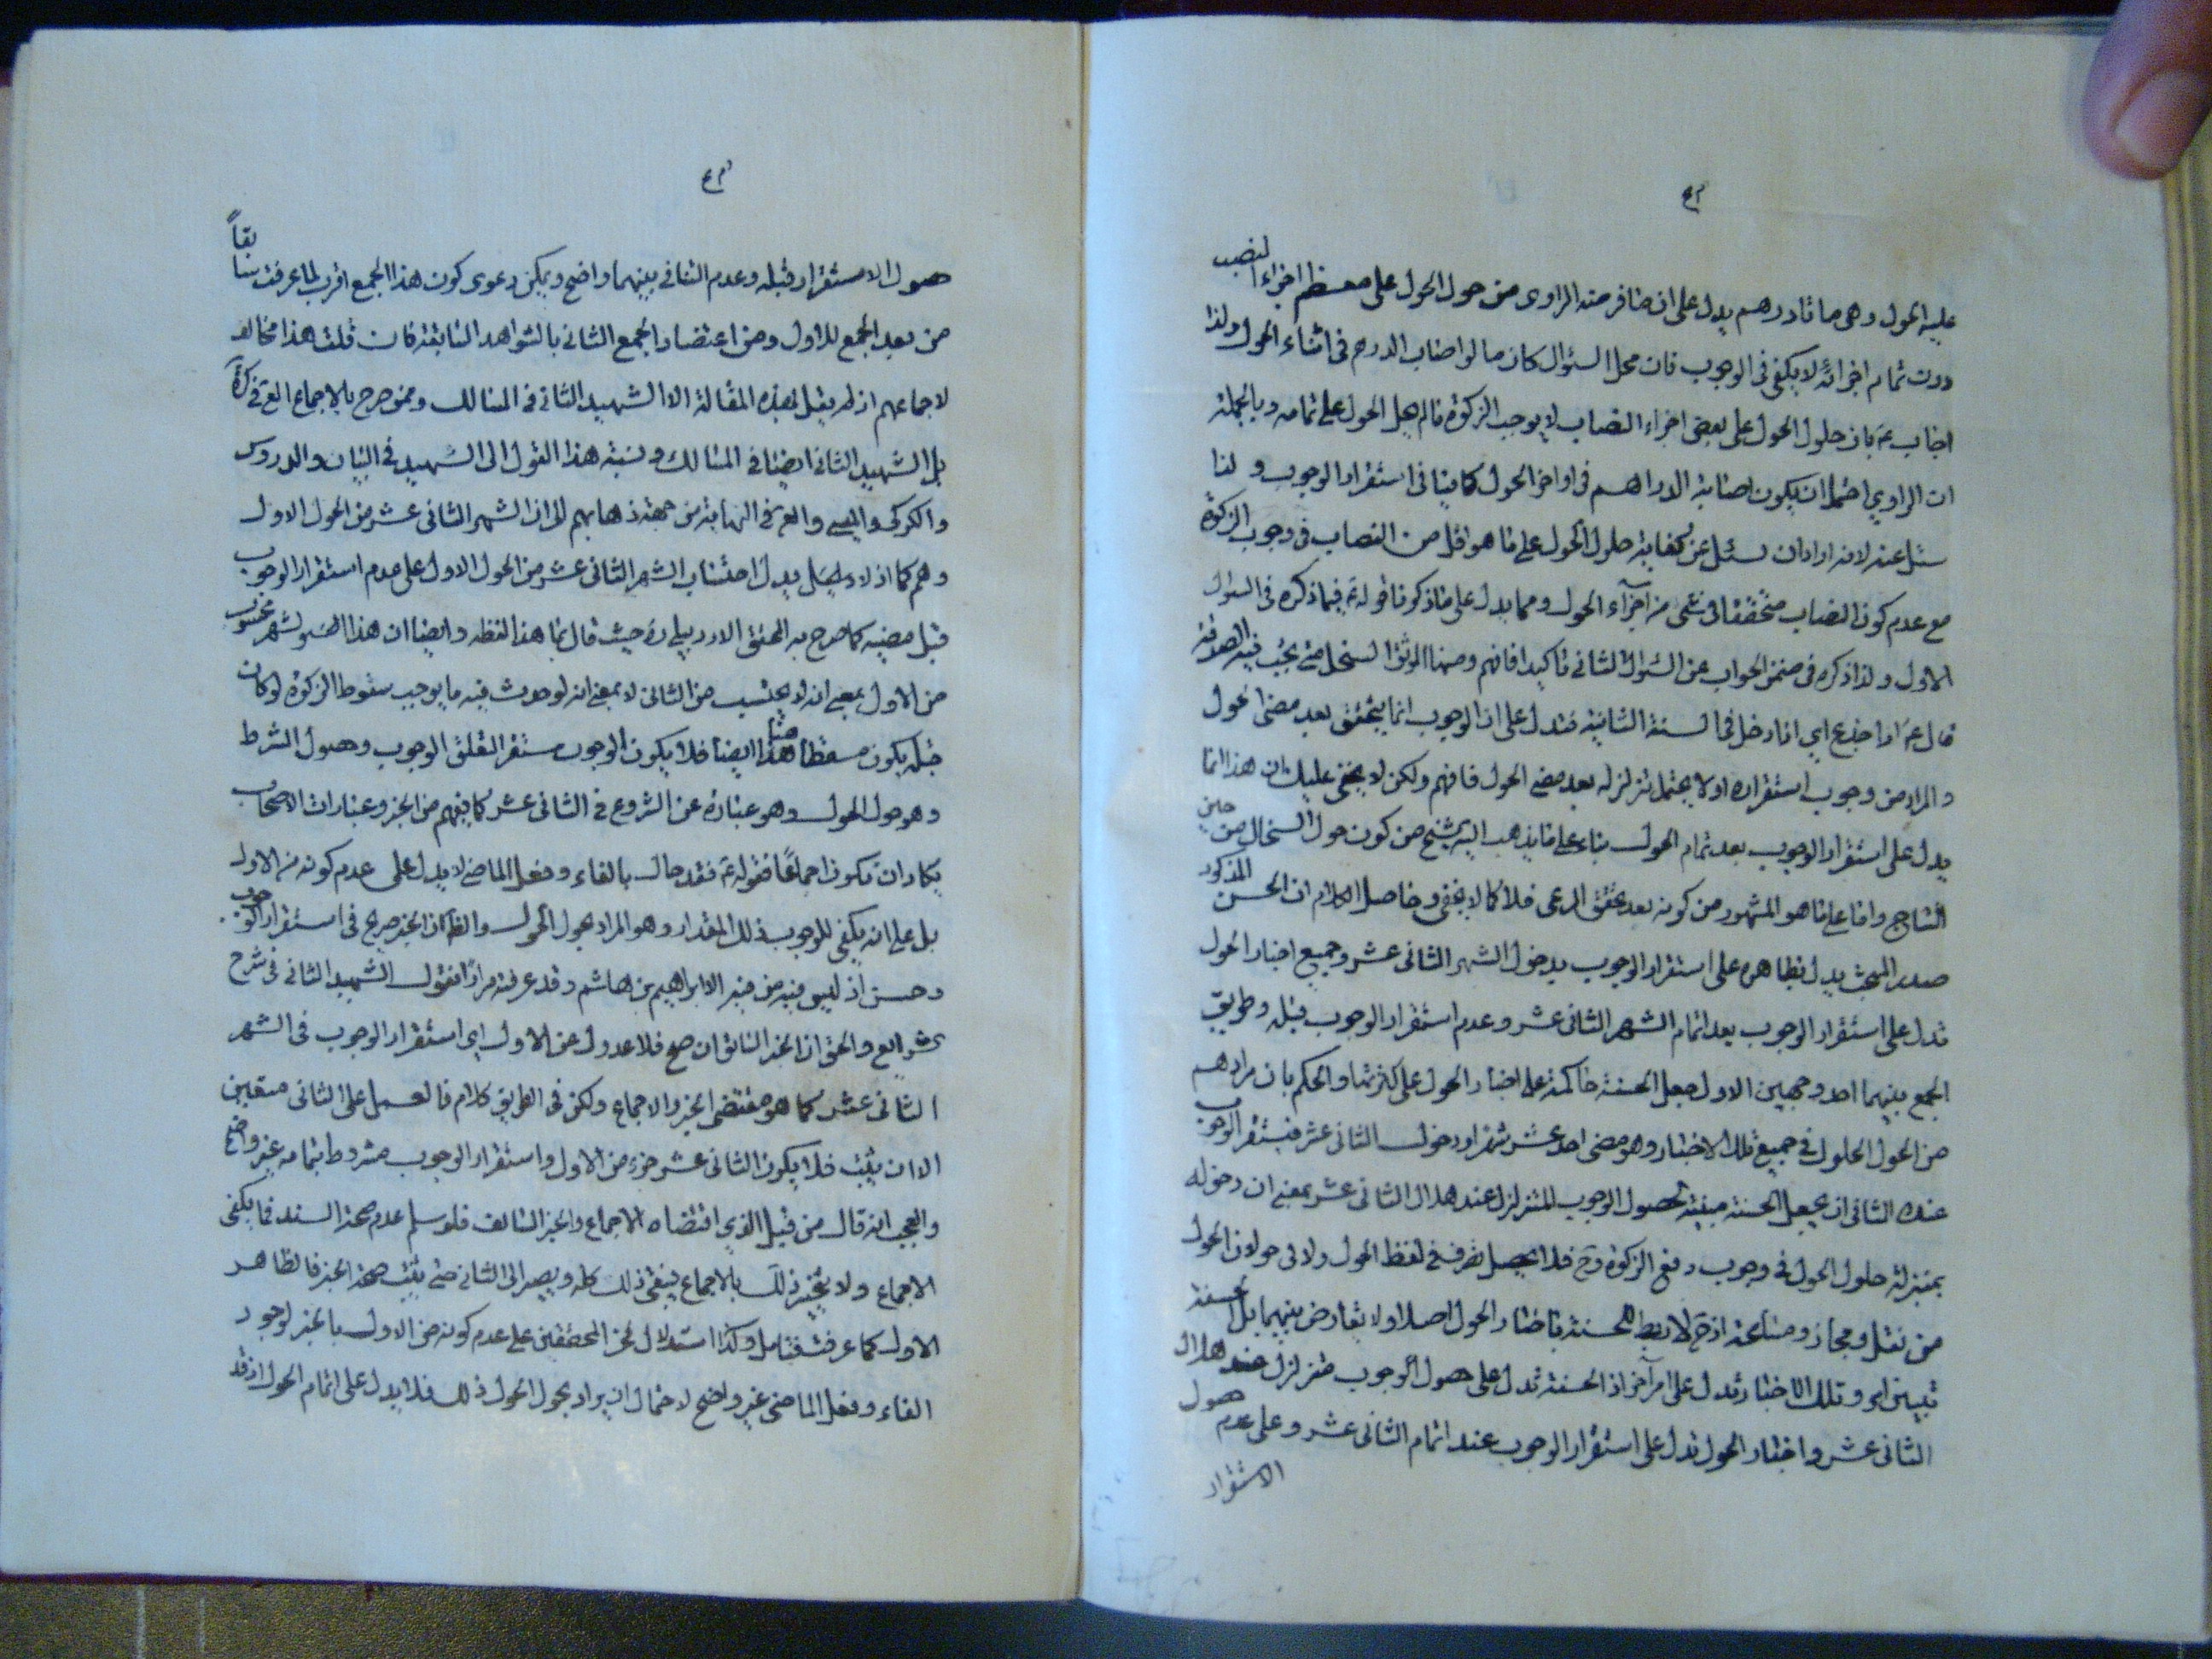 عليه الحول وهى مأتا درهم يدل على ان ما فر منه الراوى من حول الحول على معظم اجزاء النصب
دون تمام اجزائه لا يكفى فى الوجوب فان محل السئوال كان ما لو اصاب الدرهم فى اثناء الحول ولذا
اجاب ع بان حلول الحول على بعض اجزاء النصاب لا يوجب الزكوة ما لم يحل الحول على تمامه وبالجملة
ان الراوي احتمل ان يكون اصابة الدراهم فى اواخر الحول كافيا فى استقرار الوجوب ولذا
سئل عنه لانه اراد ان يسئل عن كفاية حلول الحول على ما هو اقل من النصاب فى وجوب الزكوة
مع عدم كون النصاب متحققا فى شئ من اجزآء الحول ومما يدل على ما ذكرنا قوله ع فيما ذكره فى السئوال
الاول ولذا ذكره فى ضمن الجواب عن السئوال الثانى تاكيدا فافهم ومنها الموثق السخل متى يجب فيه الصدقة
قال ع اذا اجذع اي اذا دخل فى السنة الثانية فتدل على ان الوجوب انما يتحقق بعد مضى الحول
والمراد من وجوب استقراره اولا يحتمل تزلزله بعد مضى الحول فافهم ولكن لا يخفى عليك ان هذا انما
يدل على استقرار الوجوب بعد تمام الحول بناء على ما يذهب اليه الشيخ من كون حول السخال من حين
النتاج واما على ما هو المشهور من كونه بعد تحقق الرعى فلا كما لا يخفى وحاصل الكلام ان الحسن المذكور
صدر المبحث يدل بظاهره على استقرار الوجوب بدخول الشهر الثانى عشر وجميع اخبار الحول
تدل على استقرار الوجوب بعد اتمام الشهر الثانى عشر وعدم استقرار الوجوب قبله وطريق
الجمع بينهما احد وجهين الاول جعل الحسنة حاكمة على اخبار الحول على كثرتها والحكم بان مرادهم
من الحول الحلول فى جميع تلك الاخبار وهو مضى احد عشر شهرا ودخول الثانى عشر فيستقر الوجوب
عنده الثانى ان يجعل الحسنة مبينة لحصول الوجوب المتزلزل عند هلال الثانى عشر بمعنى ان دخوله
بمنزلة حلول الحول فى وجوب دفع الزكوة وح فلا يحصل تصرف فى لفظ الحول ولا فى حولان الحول
من نقل ومجاز ومسامحة اذ ح لا ربط للحسنة باخبار الحول اصلا ولا تعارض بينهما بل الحسنة
تبين امر وتلك الاخبار تدل على امر آخر اذ الحسنة تدل على حصول الوجوب متزلزل عند هلال
الثانى عشر واخبار الحول تدل على استقرار الوجوب عند اتمام الثانى عشر وعلى عدم حصول
الاستقرار
حصول الاستقرار قبله وعدم التنافى بينهما واضح ويمكن دعوى كون هذا الجمع اقرب لما عرفت سابقاً
من بعد الجمع الاول ومن اعتضاد الجمع الثانى بالشواهد السابقة فان قلت هذا مخالف
لاجماعهم اذ لم يقل بهذه المقالة الا الشهيد الثانى فى المسالك وممن صرح بالاجماع
بل الشهيد الثانى ايضا فى المسالك ونسبة هذا القول الى الشهيد فى البيان والدروس
والكركى والميسى فى النهاية من جهة ذهابهم الى ان الشهر الثانى عشر من الحول الاول
وهم كما اذ لا دليل يدل احتساب الشهر الثانى عشر من الحول الاول على عدم استقرار الوجوب
قبل مضيه كما صرح به المحقق الاردبيلى ره حيث قال بما هذا لفظه وايضا ان هذا الشهر محسوب
من الاول بمعنى انه لا يحتسب من الثانى لا بمعنى انه لو حدث فيه ما يوجب سقوط الزكوة لو كان
قبله يكون مسقطا هنا ايضا فلا يكون الوجوب مستقر التعلق الوجوب وحصول الشرط
وهو حول الحول وهو عبارة عن الشروع فى الثانى عشر كما يفهم من الخبر وعبارات الاصحاب
يكاد ان يكون اجماعا فقوله ع فقد حال بالفاء وفعل الماضى لا يدل على عدم كونه من الاول
بل على انه يكفى للوجوب ذلك المقدار وهو المراد بحول الحول والظ ان الخبر صريح فى استقرار الوجوب
وحسن اذ ليس فيه من فيه الا ابراهيم بن هاشم وقد عرفته مرارا فقول الشهيد الثانى فى شرح
الشرايع والحق ان الخبر السابق ان صح فلا عدول عن الاول اى استقرار الوجوب فى الشهر
الثانى عشر كما هو مقتضى الخبر والاجماع ولكن فى الطريق كلام فالعمل على الثانى متعين
الا ان يثبت فلا يكون الثانى عشر جزء من الاول واستقرار الوجوب مشروط بتمامه غير واضح
والعجب انه قال من قبل الذي اقتضاه الاجماع والخبر السالف فلو سلم عدم صحة السند فما يكفى
الاجماع ولا ينجبر ذلك بالاجماع فينفى ذلك كله ويصير الى الثانى حتى يثبت صحة الخبر فالظاهر
الاول كما عرفت فتامل وكذا استدلال فخر المحققين على عدم كونه من الاول بالخبر لوجود
الفاء وفعل الماضى غير واضح لاحتمال ان يراد بحول الحول ذلك فلا يدل على اتمام الحول اذ قد